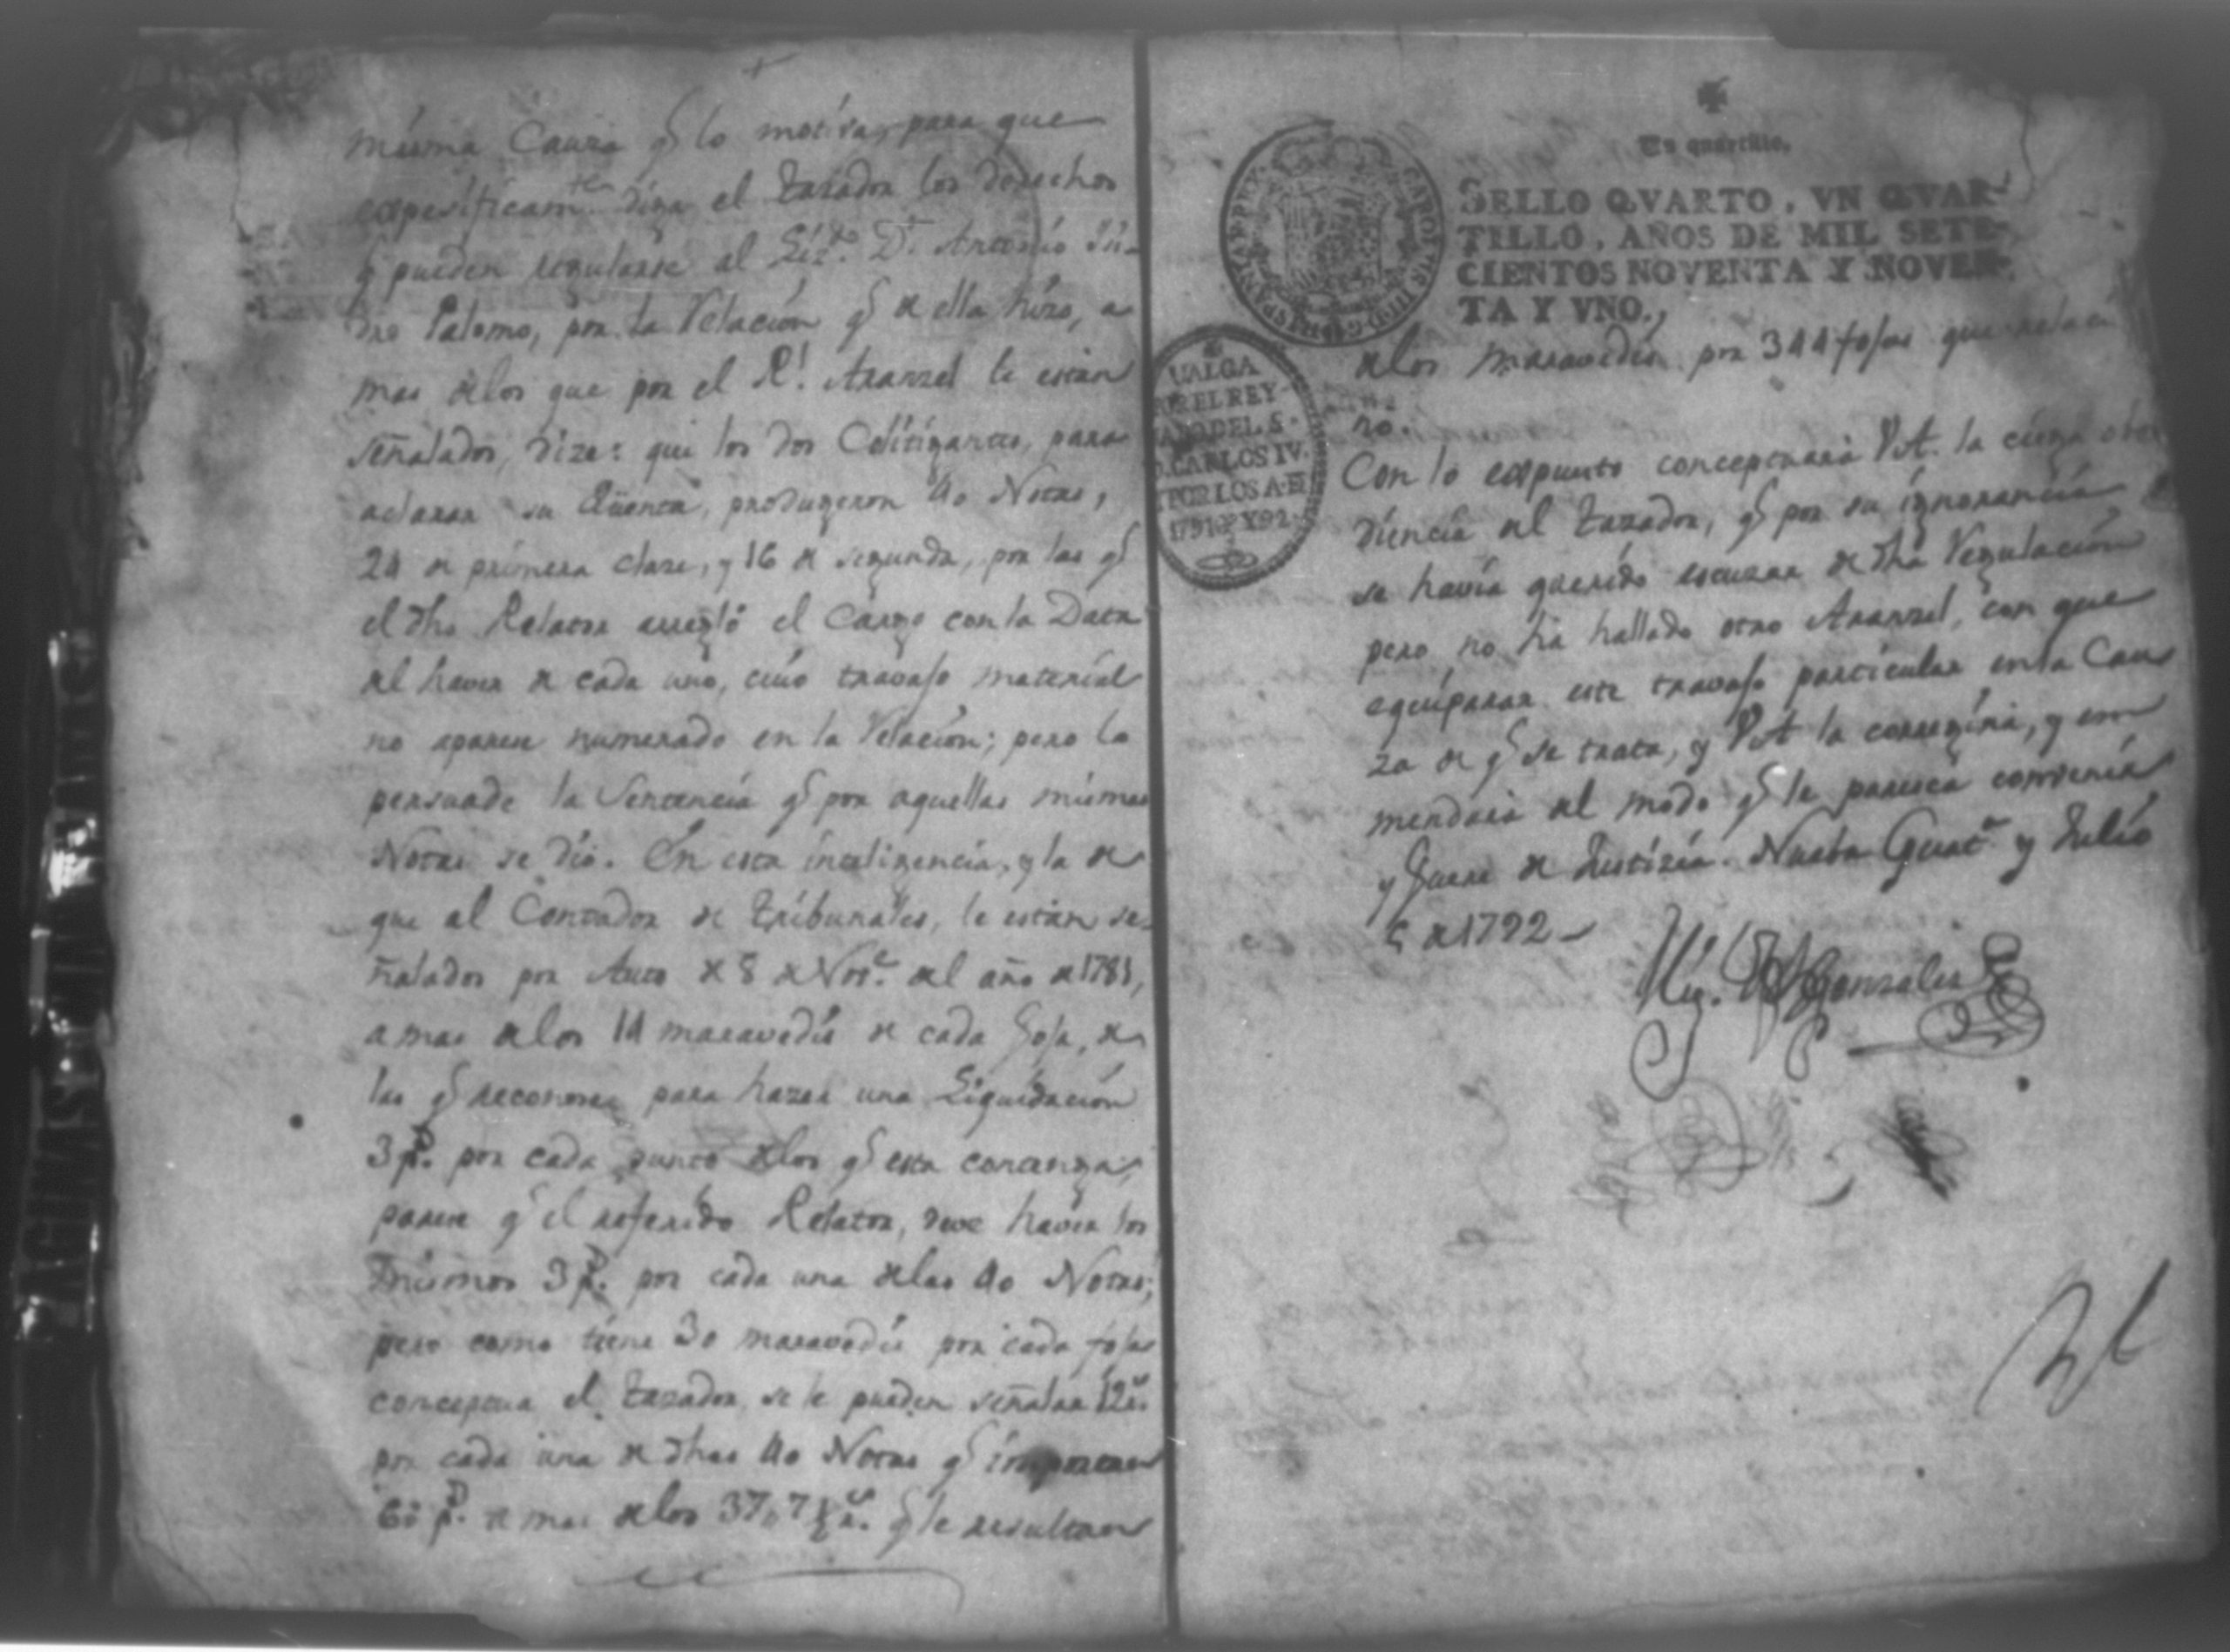 misma Cauza q̃ lo motiva, para que
expesificam.te diga el tazador los derechos
q̃ pueden regularse al Liz.do D.n Antonio Ju-
dro Palomo, por la Relación q̃ de ella hizo, a
mas delos que por el R.l Aranzel le están
señalados, dize: que los dos Colitigantes, para
aclarar su Qüenta, produgeron 40 Notas,
24 de primera clase, y 16 de segunda, por las q̃
el dho Relator arregló el Cargo con la Data
del haver de cada uno, cuio travajo material
no aparece numerado en la Relación; pero lo
persuade la Sentencia q̃ por aquellas mismas
Notas se dió. En esta inteligencia, y la de
que al Contador de tribunales, le están se-
ñalados por Auto de 8 de Nov.e del año de 1781,
a mas delos 14 maravedis de cada foja, de
las q̃ reconose para hazer una Liquidación
3 p.s por cada punto delos q̃ esta contenga;
parece q̃ el referido Relator, deve haver los
mismos 3 p.s por cada una delas 40 Notas;
pero como tiene 30 maravedis por cada foja
conceptua el tazador se le pueden señalar 12 r.s
por cada una de dhas 40 Notas q̃ importan
60 p.s a mas delos 37,, 7 r.s q̃ le resultan
Un quartillo.
SELLO QVARTO, VN QVAR-
TILLO, AÑOS DE MIL SETE-
CIENTOS NOVENTA Y NOVEN-
TA Y VNO.
VALGA
EL REY
DEL S.
D. CARLOS IV.
POR LOS A.
1791 Y 92
delos maravedis por 344 fojas que
no.
Con lo expuesto conceptuará V.A. la ciega obe
diencia del tazador, q̃ por su ignorancia
se havía querido escuzar de dha Regulación
pero no ha hallado otro Aranzel, con que
equiparar este travajo particular en la Cau
za de q̃ se trata, y V.A. la corregirá, y en
mendará del modo q̃ le paresca convenir
y fuere de Justizia. Nueba Guat.a y Julio
5 de 1792
Mig. Gonzales